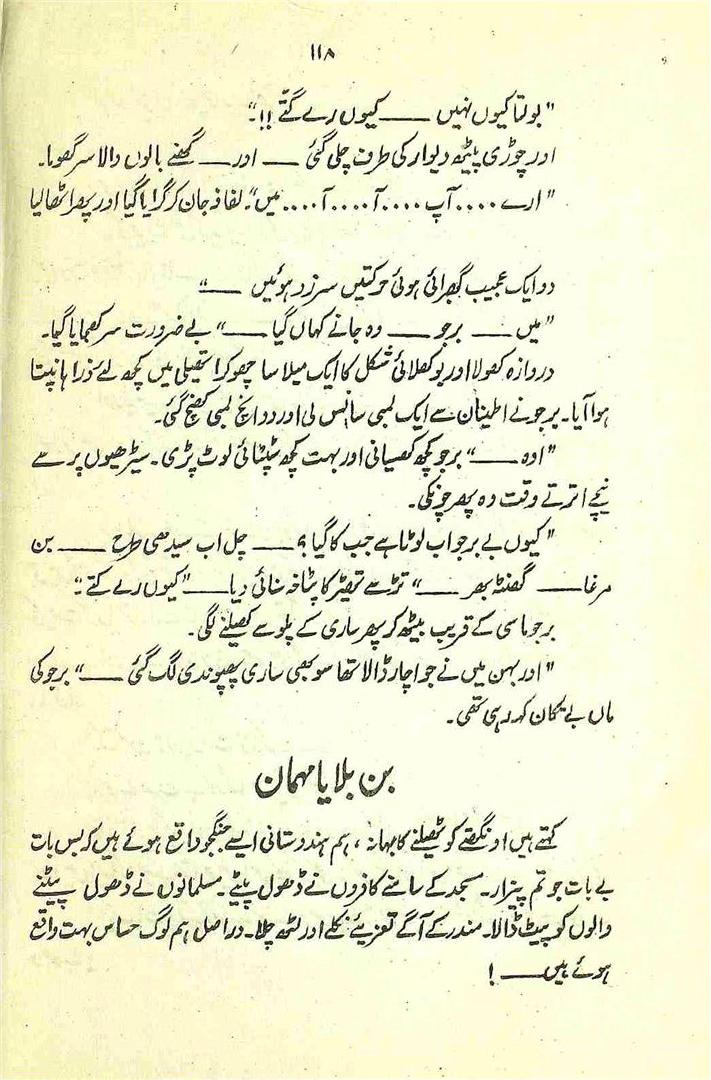 ۱۱۸
"بولتا کیوں نہیں ــــــ کیوں رے گتے !!۔"
اور چوڑی پیٹھ دیوار کی طرف چلی گئی ــــــ اور ــــــ گھنے بالوں والا سر گھوما۔
"ارے .... آپ .... آ .... آ .... میں"۔ لفافہ جان کر گرایا گیا اور پھر اٹھا لیا
دو ایک عجیب گھبرائی ہوئی حرکتیں سرزد ہوئیں ــــــ"
"میں ــــــ برجو ــــــ وہ جانے کہاں گیا ــــــ" بے ضرورت سر کھجایا گیا۔
دروازہ کھولا اور بوکھلائی شکل کا ایک میلا سا چھوکرا تھیلی میں کچھ لئے ذرا ہانپتا
ہوا آیا۔ برجو نے اطینان سے ایک لمبی سانس لی اور دو انچ لمبی کھنچ گئی۔
"اوہ ــــــ" برجو کچھ کھسیانی اور بہت کچھ سٹپٹائی لوٹ پڑی۔ سیڑھیوں پر سے
نیچے اترتے وقت وہ پھر چونکی۔
"کیوں بے برجو اب لوٹا ہے جب کا گیا؟ ــــــ چل اب سیدھی طرح ــــــ بن
مرغا ــــــ گھنٹہ بھر ــــــ" تڑ سے تھپڑ کا پٹاخہ سنائی دیا ــــــ "کیوں رے کتے"۔
برجو ماسی کے قریب بیٹھ کر پھر ساری کے پلو سے کھیلنے لگی۔
"اور بہن میں نے جو اچار ڈالا تھا سو کبھی ساری پھپوندی لگ گئی ــــــ" برجو کی
ماں بے تکان کہہ رہی تھی۔
بن بلایا مہمان
کہتے ہیں اونگھتے کو ٹھیلنے کا بہانہ، ہم ہندوستانی ایسے جنگجو واقع ہوئے ہیں کہ بس بات
بے بات جوتم پیزار۔ مسجد کے سامنے کافروں نے ڈھول پیٹے۔ مسلمانوں نے ڈھول پیٹنے
والوں کو پیٹ ڈالا۔ مندر کے آگے تعزیئے نکلے اور لٹھ چلا۔ دراصل ہم لوگ حساس بہت واقع
ہوئے ہیں ــــــ !